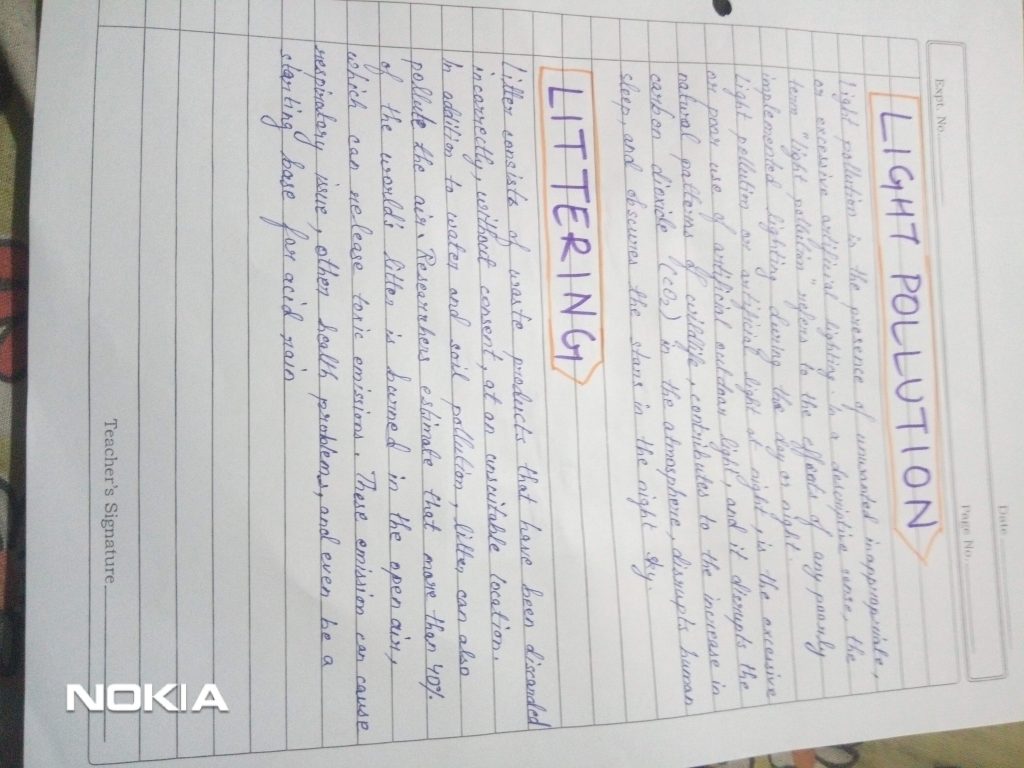 Date
Expt. No.
Page No.
LIGHT POLLUTION
Light pollution is the presence of unwanted, inappropriate,
or excessive artificial lighting. In a descriptive sense, the
term "light pollution" refers to the effects of any poorly
implemented lighting during the day or night.
Light pollution or artificial light at night, is the excessive
or poor use of artificial outdoor light, and it disrupts the
natural patterns of wildlife, contributes to the increase in
carbon dioxide (CO2) in the atmosphere, disrupts human
sleep, and obscures the stars in the night sky.
LITTERING
Litter consists of waste products that have been discarded
incorrectly, without consent, at an unsuitable location.
In addition to water and soil pollution, litter can also
pollute the air. Researchers estimate that more than 40%
of the world's litter is burned in the open air,
which can release toxic emissions. These emission can cause
respiratory issue, other health problems, and even be a
starting base for acid rain
Teacher's Signature
NOKIA